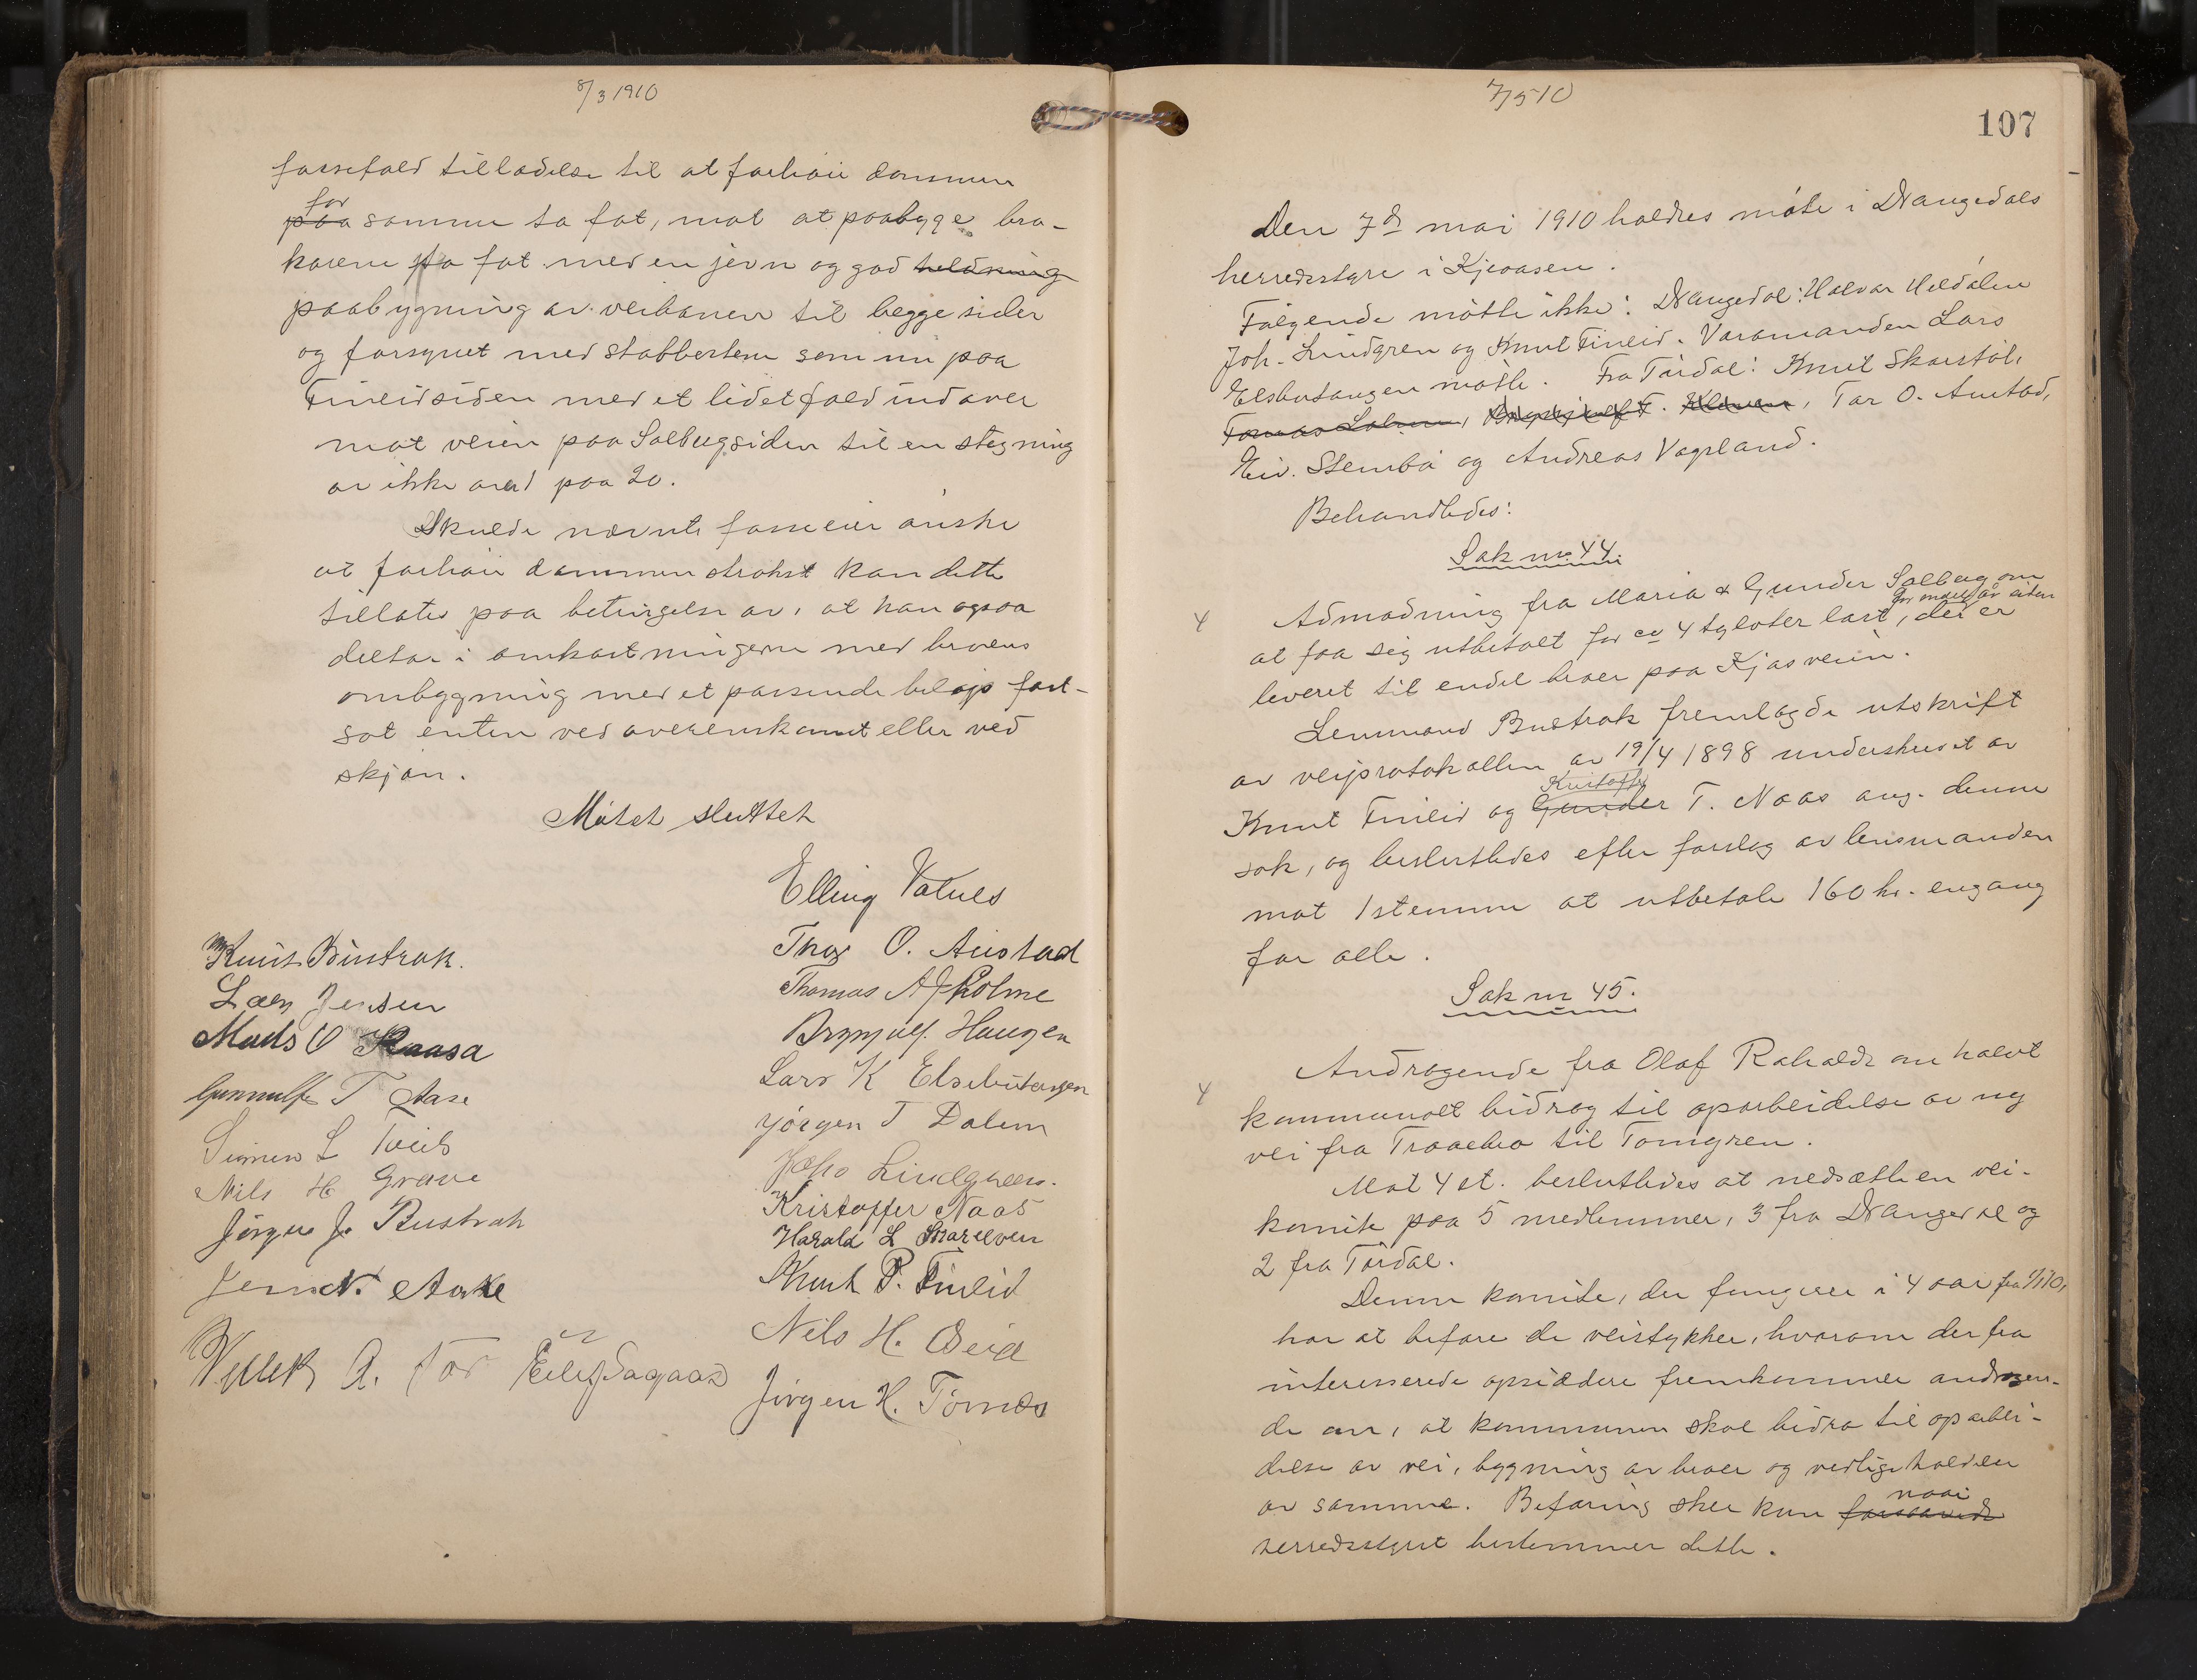 8/3 1910
fossefald tilladelse til at forhøie dammen
for
paa samme to fot, mot at paabygge bro-
karene to fot med en jevn og god heldning
paabygning av veibanen til begge sider
og forsynet med stabbestene som nu paa
Fineidsiden med et lidet fald indover
mot veien paa Solbergsiden til en stegning
av ikke over 1 paa 20.
Skulde nævnte fosseeier ønske
at forhøie dammen strakst kan dette
tillates paa betingelse av, at han ogsaa
deltar i omkostningerne med broens
ombygning med et passende beløp fast-
sat enten ved overenskomst eller ved
skjøn.
Møtet sluttet
Elling Vatnes
Knut Bustrak.
Thor O. Austad
Lars Jensen
Thomas A Holme
Mads O Kaasa
Brynjulf Haugen
Gunnulf T Aase
Lars K Elsebutangen
Simen L Tveit
Jørgen T Dalem
Nils H Grave
Joho Lindgreen.
Jørgen J. Bustrak
Kristoffer Naas
Harald L
Jens N. Aase
Knut P. Fineid
Nils H. Eeid
A. Tor
Jørgen H. Tørnes
7/5 10
107
Den 7de mai 1910 holdtes møte i Drangedals
herredsstyre i Kjeaasen.
Følgende møtte ikke: Drangedal: Halvor Heldalen
Joh. Lindgren og Knut Fineid. Varamanden Lars
Elsbutangen møtte. Fra Tørdal: Knut Skarstøl,
Tomas Holmen, Brynjulf T. , Tor O. Austad,
Eiv. Stenbø og Andreas Vagsland.
Behandledes:
Sak nr. 44.
4
Admodning fra Maria & Gunder Solberg om
for endel år siden
at faa sig utbetalt for ca 4 tylvter last, der er
leveret til endel broer paa Kjøsveien.
Lensmand Bustrak fremlagde utskrift
av veiprotokollen av 19/4 1898 underskrevet av
Kristoffer
Knut Fineid og Gunder T. Naas ang. denne
sak, og besluttedes efter forslag av lensmanden
mot 1 stemme at utbetale 160 kr. engang
for alle.
Sak nr 45.
4
Andragende fra Olaf Roholdt om halvt
kommunalt bidrag til oparbeidelse av ny
vei fra Traaebro til Tomgren.
Mot 4 st. besluttedes at nedsætte en vei-
komite paa 5 medlemmer, 3 fra Drangedal og
2 fra Tørdal.
Denne komite, der fungerer i 4 aar fra 1/1 10,
har at befare de veistykker, hvorom der fra
interesserede opsiddere fremkommer andragen-
de om, at kommunen skal bidra til oparbei-
delse av vei, bygning av broer og vedlikeholdelse
av samme. Befaring sker kun forsaavidt
naar
herredsstyret bestemmer dette.